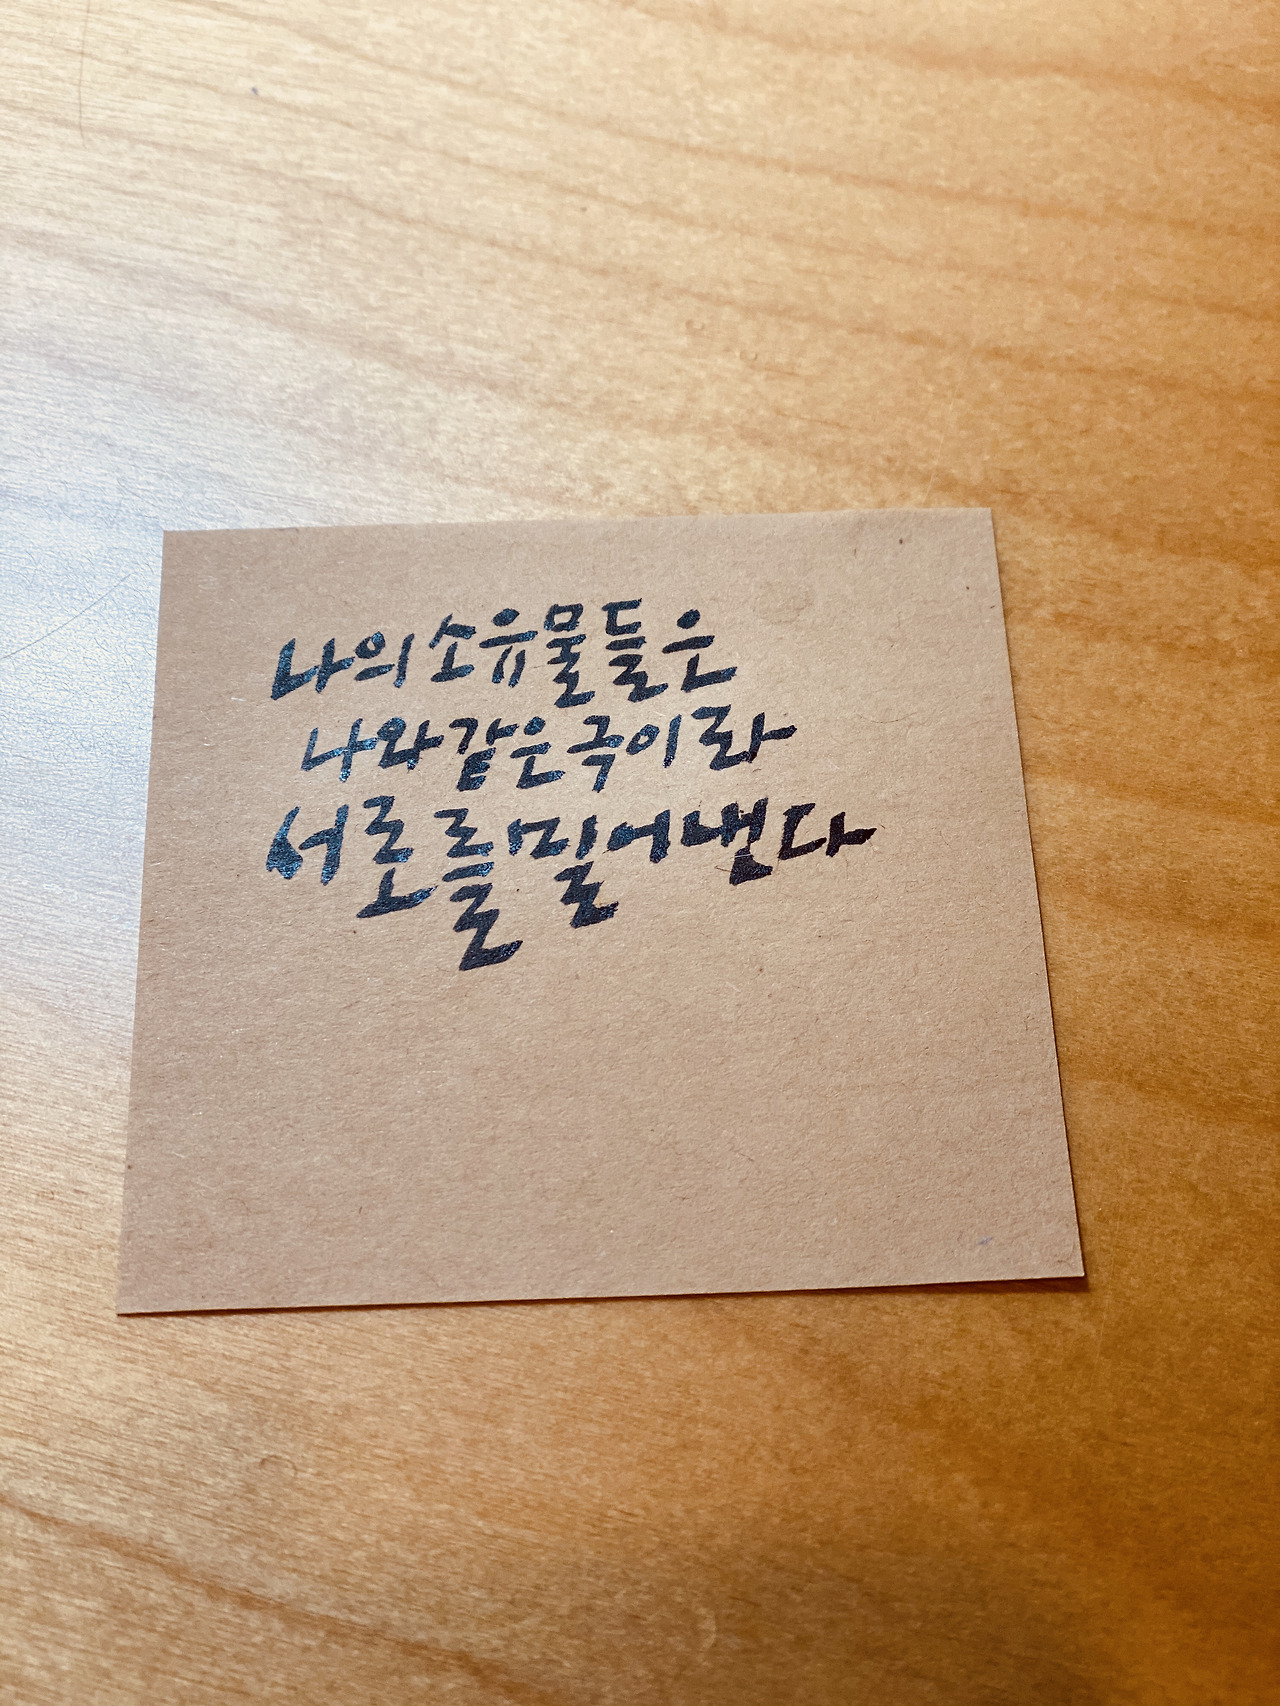 나의 소유물들은
나와 같은 극이라
서로를 밀어낸다